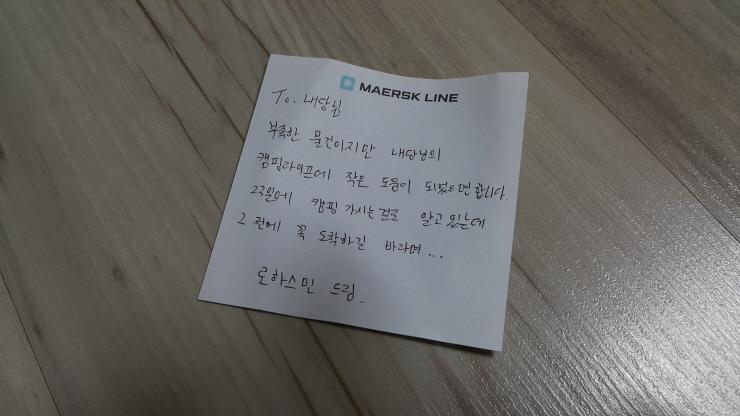 MAERSK LINE
To. 내당님
부족한 물건이지만 내당님의
캠핑라이프에 작은 도움이 되었으면 합니다.
23일에 캠핑 가시는걸로 알고 있는데
그 전에 꼭 도착하길 바라며...
로하스민 드림.